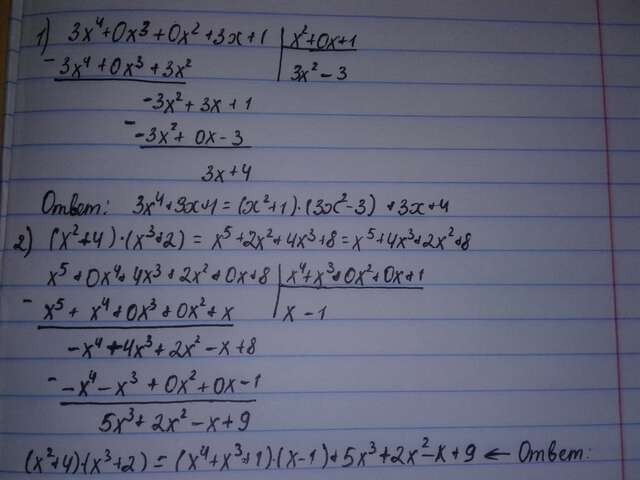 1) 3x⁴+0x³+0x²+3x+1 | x²+0x+1
- 3x⁴+0x³+3x² | 3x²-3
-3x²+3x+1
- -3x²+0x-3
3x+4
Ответ: 3x⁴+3x+1=(x²+1)·(3x²-3)+3x+4
2) (x²+4)·(x³+2)=x⁵+2x²+4x³+8=x⁵+4x³+2x²+8
x⁵+0x⁴+4x³+2x²+0x+8 | x⁴+x³+0x²+0x+1
- x⁵+x⁴+0x³+0x²+x | x-1
-x⁴+4x³+2x²-x+8
- -x⁴-x³+0x²+0x-1
5x³+2x²-x+9
(x²+4)·(x³+2)=(x⁴+x³+1)·(x-1)+5x³+2x²-x+9 ← Ответ: